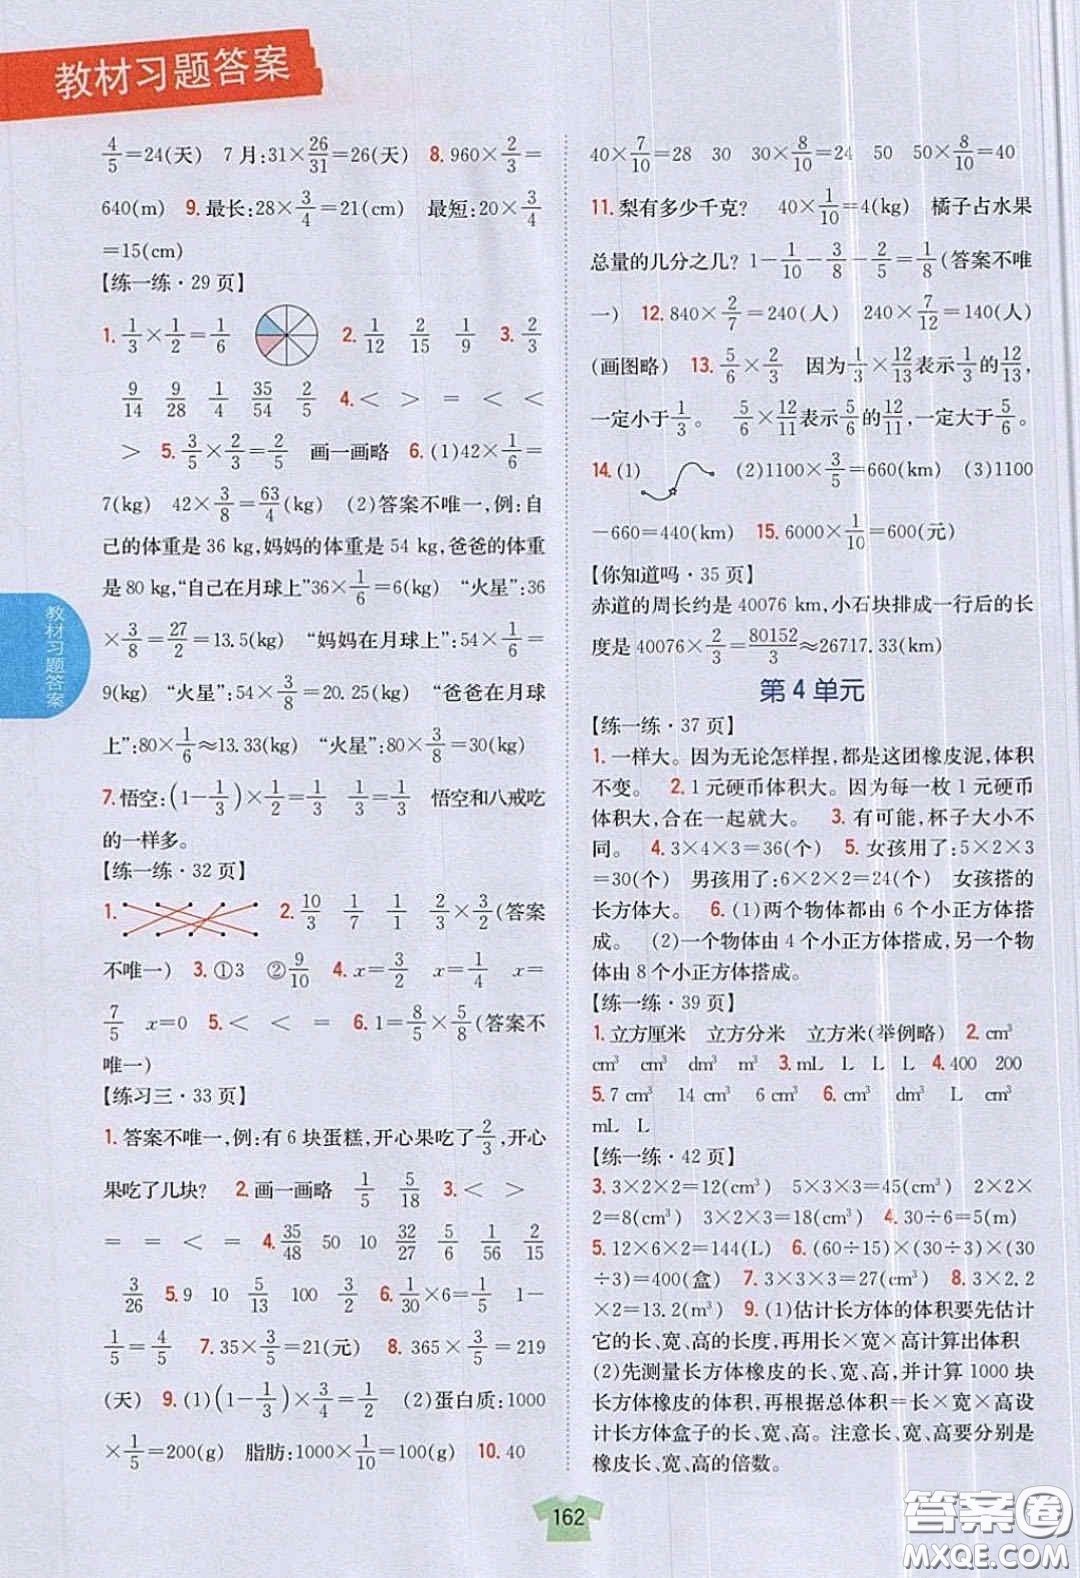 教材习题答案
4/5=24(天) 7月:31×26/31=26(天) 8.960×2/3=
640(m) 9.最长:28×3/4=21(cm) 最短:20×3/4
=15(cm)
【练一练·29页】
1. 1/3×1/2=1/6 2. 1/12 2/15 1/9 3. 2/3
9/14 9/28 1/4 35/54 2/5 4.< > = < <
> 5. 3/5×2/3=2/5 画一画略 6.(1)42×1/6=
7(kg) 42×3/8=63/4(kg) (2)答案不唯一,例:自
己的体重是36 kg,妈妈的体重是54 kg,爸爸的体重
是80 kg,“自己在月球上”36×1/6=6(kg) “火星”:36
×3/8=27/2=13.5(kg) “妈妈在月球上”:54×1/6=
9(kg) “火星”:54×3/8=20.25(kg) “爸爸在月球
上”:80×1/6≈13.33(kg) “火星”:80×3/8=30(kg)
7.悟空:(1-1/3)×1/2=1/3 1/3=1/3 悟空和八戒吃
的一样多。
【练一练·32页】
1. 2. 10/3 1/7 1/1 2/3×3/2(答案
不唯一) 3.①3 ②9/10 4. x=3/2 x=1/4 x=
7/5 x=0 5.< < = 6. 1=8/5×5/8(答案不
唯一)
【练习三·33页】
1.答案不唯一,例:有6块蛋糕,开心果吃了2/3,开心
果吃了几块? 2.画一画略 1/5 5/18 3.< >
= = < = 4. 35/48 50 10 32/27 5/6 1/56 2/15
3/26 5.9 10 5/13 100 3/2 6. 1/30×6=1/5 1-
1/5=4/5 7.35×3/5=21(元) 8. 365×3/5=219
(天) 9.(1)(1-1/3)×3/4=1/2 (2)蛋白质:1000
×1/5=200(g) 脂肪:1000×1/10=100(g) 10. 40
40×7/10=28 30 30×8/10=24 50 50×8/10=40
11.梨有多少千克? 40×1/10=4(kg) 橘子占水果
总量的几分之几? 1-1/10-3/8-2/5=1/8(答案不唯
一) 12. 840×2/7=240(人) 240×7/12=140(人)
(画图略) 13. 5/6×2/3 因为1/3×12/13表示1/3的12/13,
一定小于1/3。 5/6×12/11表示5/6的12/11,一定大于5/6。
14.(1) (2)1100×3/5=660(km) (3)1100
-660=440(km) 15. 6000×1/10=600(元)
【你知道吗·35页】
赤道的周长约是40076 km,小石块排成一行后的长
度是40076×2/3=80152/3≈26717.33(km)
第4单元
【练一练·37页】
1.一样大。因为无论怎样捏,都是这团橡皮泥,体积
不变。 2.1元硬币体积大。因为每一枚1元硬币
体积大,合在一起就大。 3.有可能,杯子大小不
同。 4. 3×4×3=36(个) 5.女孩用了:5×2×3
=30(个) 男孩用了:6×2×2=24(个) 女孩搭的
长方体大。 6.(1)两个物体都由6个小正方体搭
成。 (2)一个物体由4个小正方体搭成,另一个物
体由8个小正方体搭成。
【练一练·39页】
1.立方厘米 立方分米 立方米(举例略) 2.cm³
cm³ cm³ dm³ m³ 3.mL L L L 4.400 200
5.7 cm³ 14 cm³ 8 cm³ 6.cm³ dm³ L cm³
mL L
【练一练·42页】
3. 3×2×2=12(cm³) 5×3×3=45(cm³) 2×2×
2=8(cm³) 3×2×3=18(cm³) 4. 30÷6=5(m)
5. 12×6×2=144(L) 6. (60÷15)×(30÷3)×(30
÷3)=400(盒) 7. 3×3×3=27(cm³) 8. 3×2.2
×2=13.2(m³) 9. (1)估计长方体的体积要先估计
它的长、宽、高的长度,再用长×宽×高计算出体积
(2)先测量长方体橡皮的长、宽、高,并计算1000块
长方体橡皮的体积,再根据总体积=长×宽×高设
计出长方体盒子的长、宽、高。注意长、宽、高要分别是
橡皮长、宽、高的倍数。
教材习题答案
162
答案圈
MXQE.COM